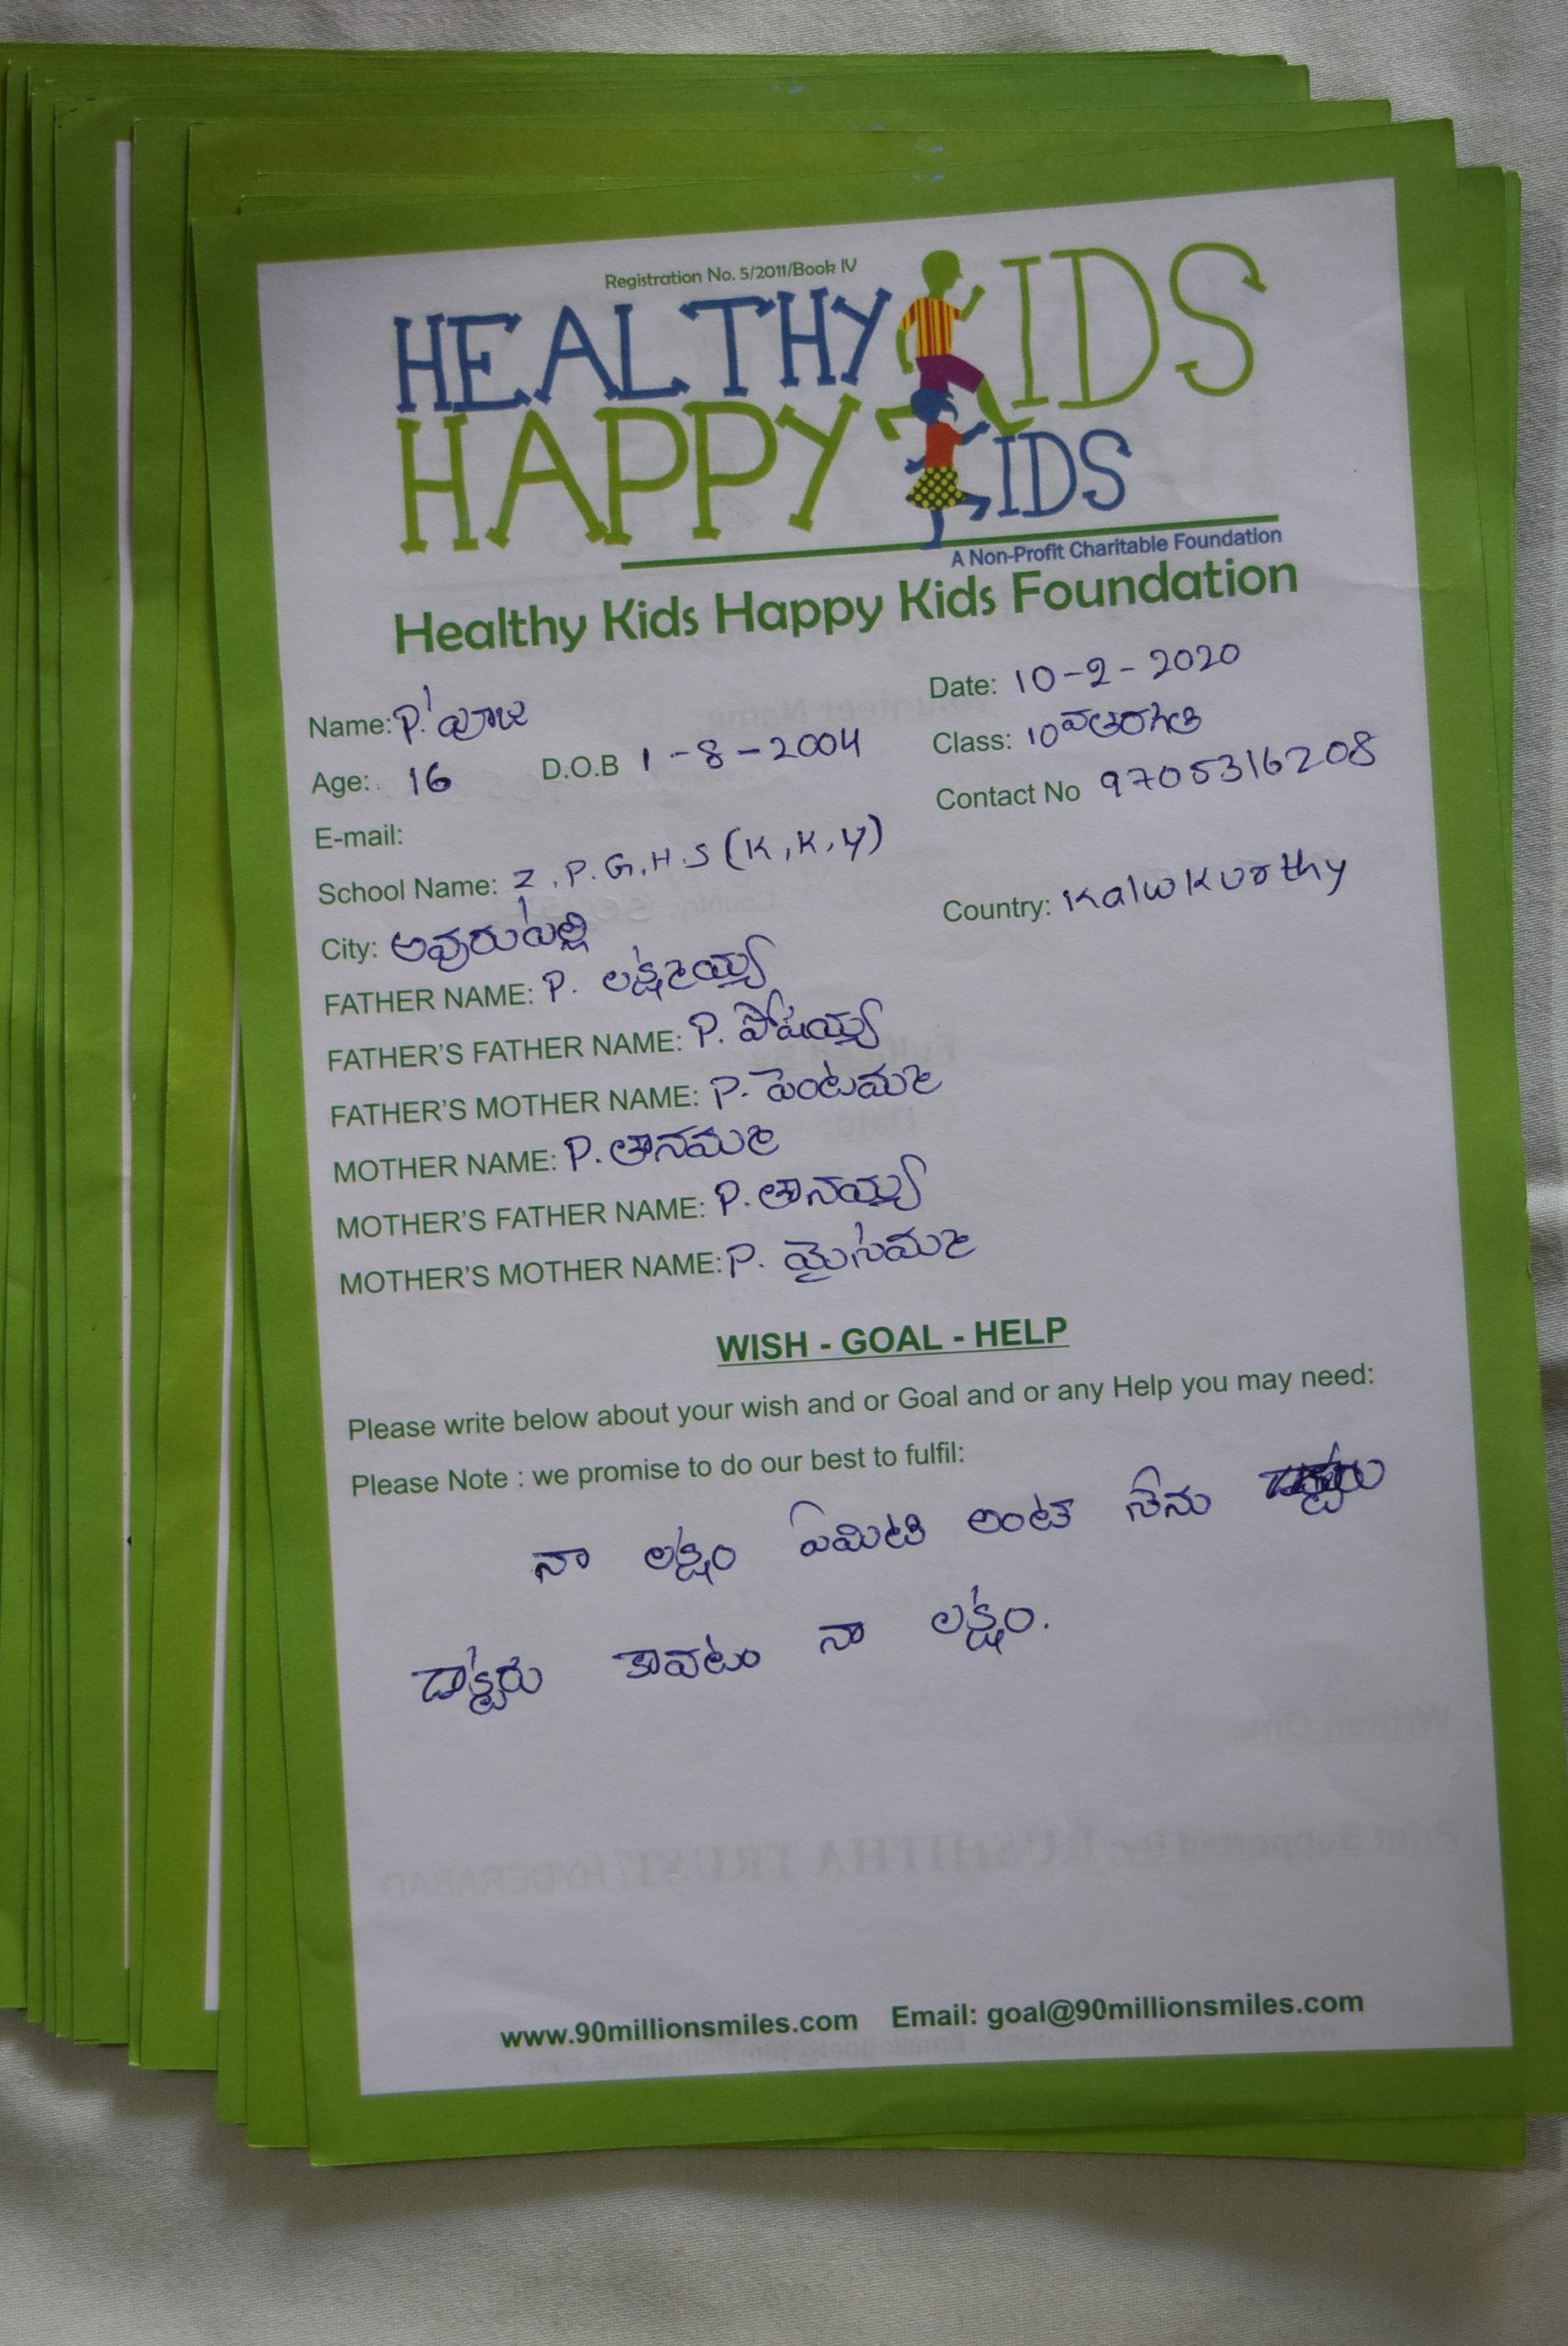 Registration No. 5/2011/Book IV
HEALTHY KIDS
HAPPY KIDS
A Non-Profit Charitable Foundation
Healthy Kids Happy Kids Foundation
Name: P. పూజ
Date: 10-2-2020
Age: 16 D.O.B 1-8-2004
Class: 10వతరగతి
E-mail:
Contact No 9705316208
School Name: Z.P.G.H.S (K,K,Y)
City: అవురుపల్లి
Country: Kalwkurthy
FATHER NAME: P. లక్ష్మయ్య
FATHER'S FATHER NAME: P. పోషయ్య
FATHER'S MOTHER NAME: P. పెంటమ్మ
MOTHER NAME: P. తానమ్మ
MOTHER'S FATHER NAME: P. తానయ్య
MOTHER'S MOTHER NAME: P. మైసమ్మ
WISH - GOAL - HELP
Please write below about your wish and or Goal and or any Help you may need:
Please Note : we promise to do our best to fulfil:
నా లక్షం ఏమిటి అంటే నేను
డాక్టరు కావటం నా లక్షం.
www.90millionsmiles.com Email: goal@90millionsmiles.com